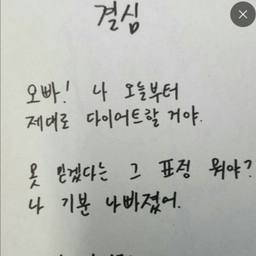 결심
오빠! 나 오늘부터
제대로 다이어트할 거야.
못 믿겠다는 그 표정 뭐야?
나 기분 나빠졌어.